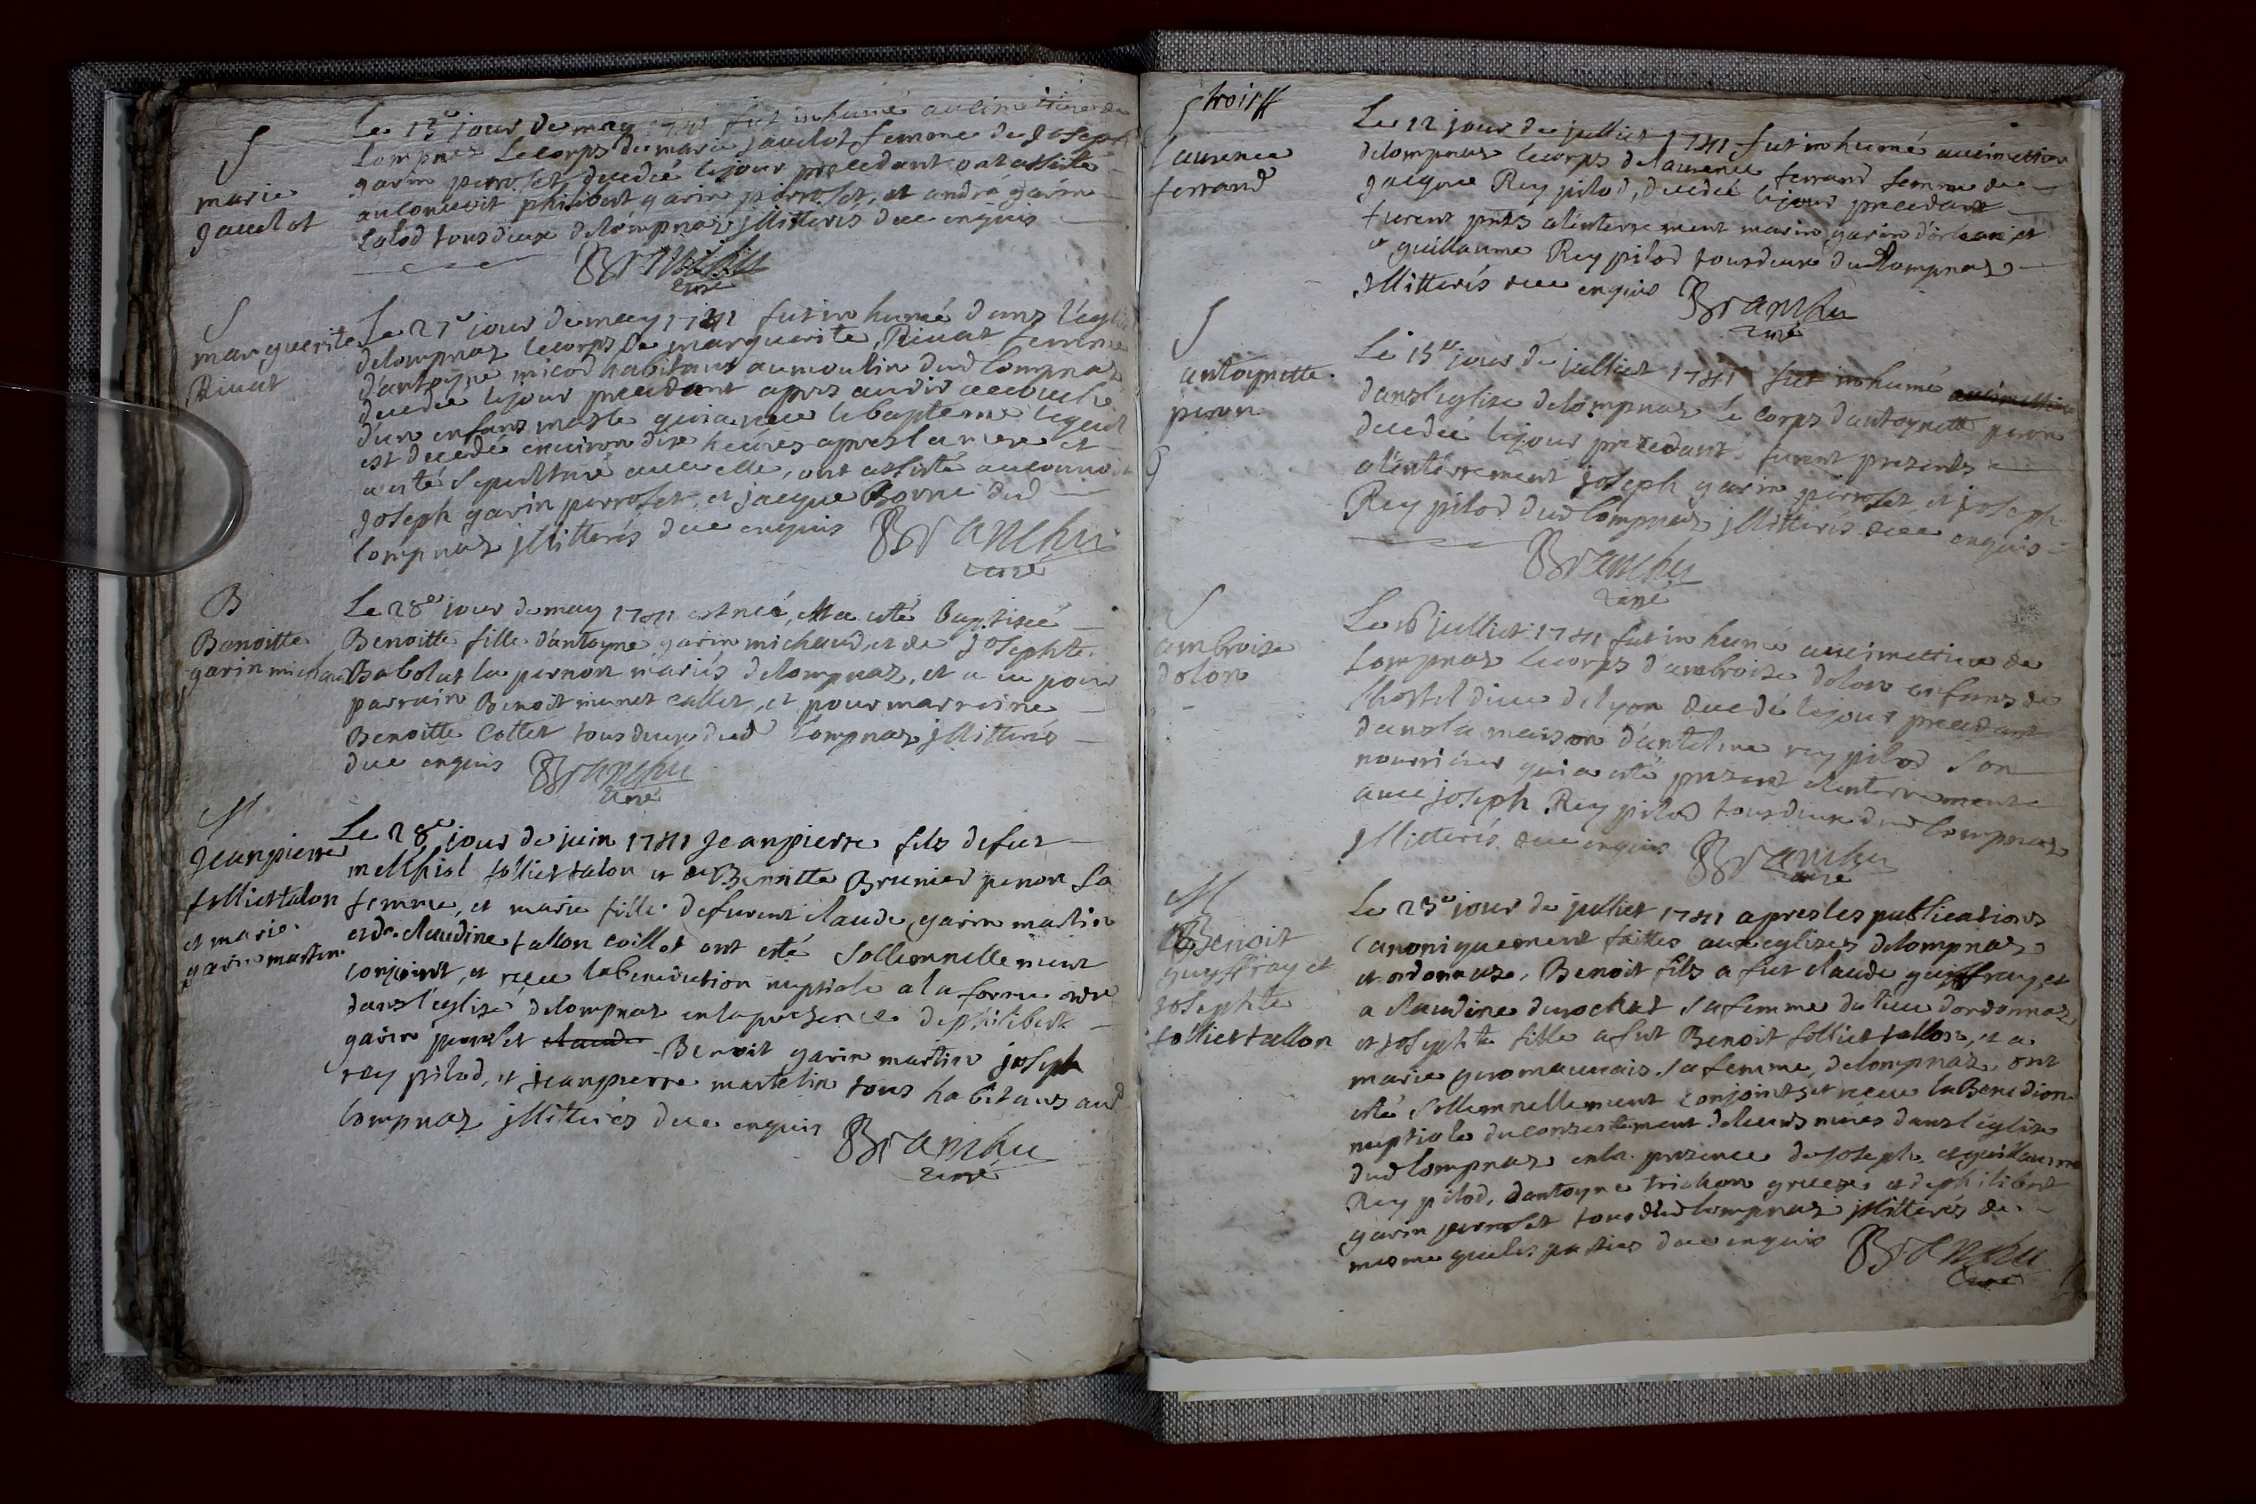 S
marie
Jauclot
Le 13e jour de may 1741 fut inhumé au cimettiere de
Lompnaz le corps de marie Jauclot femme de Joseph
garin perrolet, decedeé le jour precedant ont assisté
au convoit philibert garin perrolet, et andré garin
Lalod tous deux de lompnaz illitterés de ce enquis
Branchu
curé
S
marguerite
Rivat
Le 27e jour de may 1741 fut inhumé dans l'eglise
de lompnaz le corps de marguerite Rivat femme
d'antoyne micod habitant au moulin dud lompnaz
decedeé le jour precedant apres avoir accouché
d'un enfant masle qui a receu le bapteme lequel
est decedé environ dix heures apres la mere et
a esté sepulturé avec elle, ont assisté au convoit
Joseph garin perrolet, et jacque Borne dud
lompnaz illitterés de ce enquis Branchu
curé
B
Benoitte
garin michaud
Le 28e jour de may 1741 est neé, et a esté Baptiseé
Benoitte fille d'antoyne garin michaud, et de Josephte
Babolat la pernon mariés de lompnaz, et a eu pour
parrain Benoit munet callet, et pour marraine
Benoitte Cottet tous deux dud lompnaz illitterés
de ce enquis Branchu
curé
M
Jeanpierre
folliet talon
et marie
garin martin
Le 28e jour de juin 1741 Jeanpierre fils de fut
melchiol folliet talon et de Benoitte Brunier penon sa
femme, et marie fille defurent claude garin martin
et de claudine tallon coillet ont esté sollemnellement
conjoint, et receu la benediction nuptiale a la forme ordre
dans l'eglise de lompnaz en la presence de philibert
garin perrolet claude Benoit garin martin joseph
rey pilod, et jeanpierre martelin tous habitans aud
lompnaz illitterés de ce enquis
Branchu
curé
S troisff
Laurence
ferrand
Le 12 jour de julliet 1741 fut inhumé au cimettiere
de lompnaz le corps de laurence ferrand femme de
Jacque Rey pilod, decedeé le jour precedant
furent pnts a l'enterrement marin garin
et guillaume Rey pilod tous deux dud lompnaz
illitterés de ce enquis Branchu
curé
S
antoynette
peron
Le 15e jour de julliet 1741 fut inhumé au cimettiere
dans l'eglise de lompnaz le corps d'antoynette peron
decedeé le jour precedant furent presents
a l'enterrement joseph garin perrolet, et joseph
Rey pilod dud lompnaz illitterés de ce enquis
Branchu
curé
S
ambroise
dolon
Le 16 julliet 1741 fut inhumé au cimettiere de
Lompnaz le corps d'ambroise dolon enfans de
l'hostel dieu de lyon decedé le jour precedant
dans la maison d'antelme rey pilod son
nourricier qui a esté present a l'enterrement
avec joseph Rey pilod tous deux dud lompnaz
illitterés de ce enquis Branchu
curé
M
Benoit
guyffray et
Josephte
folliet tallon
Le 23e jour de julliet 1741 apres les publications
canoniquement faittes aux eglises de lompnaz
et ordonnaz, Benoit fils a fut claude guyffray, et
a claudine durochat sa femme du lieu d'ordonnaz
et josephte fille a fut Benoit folliet tallon, et a
marie gromauvais sa femme, de lompnaz ont
esté sollemnellement conjoints et receu la Benedion
nuptiale du consentement de leurs meres dans l'eglise
dud lompnaz en la presence de Joseph, et guillaume
Rey pilod, d'antoyne trichon et de philibert
garin perrolet tous dud lompnaz illitterés de
mesme que les parties de ce enquis Branchu
Curé